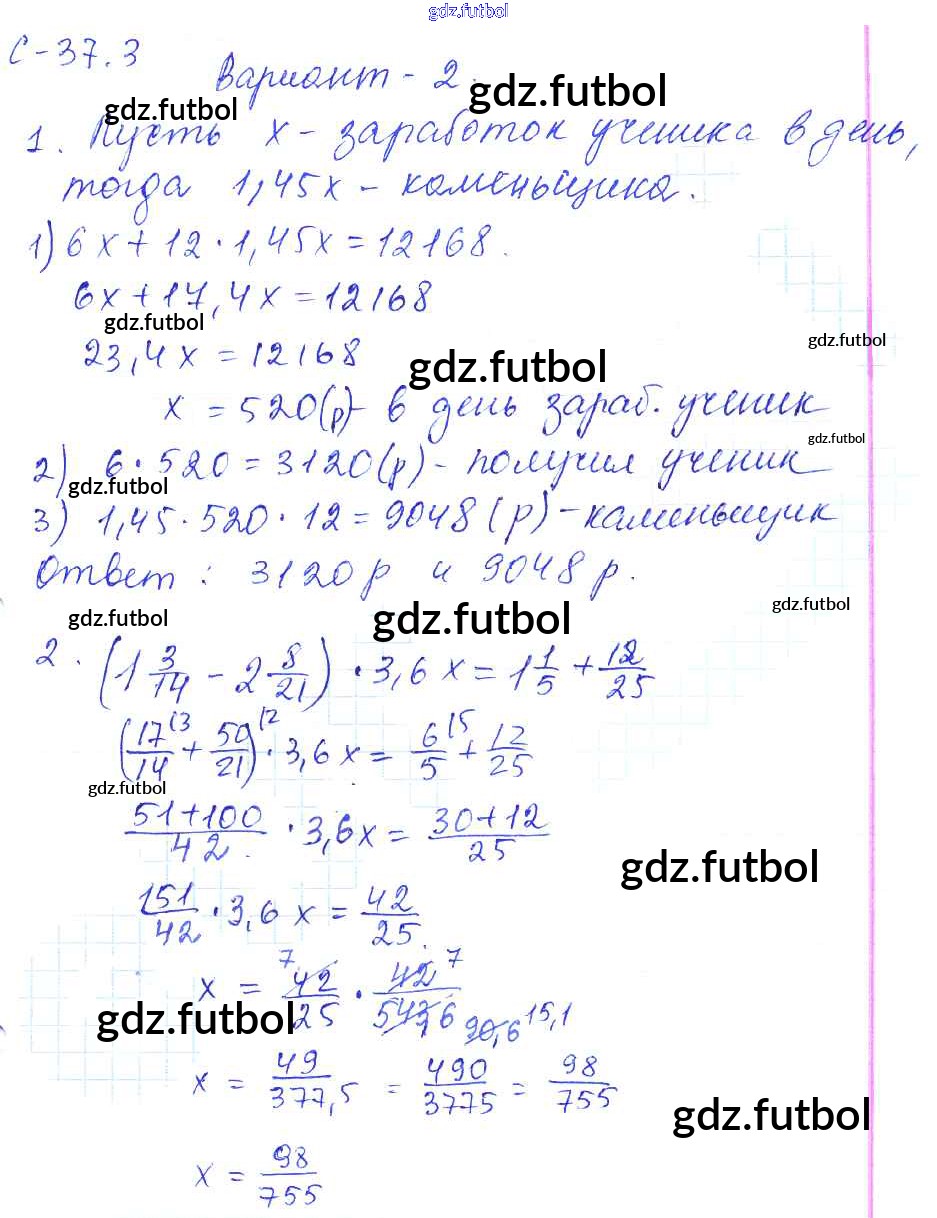 gdz.futbol
С-37.3
Вариант - 2.
gdz.futbol
gdz.futbol
1. Пусть x - заработок ученика в день,
тогда 1,45x - каменьщика.
1) 6x + 12 · 1,45x = 12168.
6x + 17,4x = 12168
gdz.futbol
23,4x = 12168
gdz.futbol
gdz.futbol
x = 520(р) - в день зараб. ученик
gdz.futbol
2) 6 · 520 = 3120(р) - получил ученик
gdz.futbol
3) 1,45 · 520 · 12 = 9048 (р) - каменьщик
Ответ : 3120 р и 9048 р.
gdz.futbol
gdz.futbol
gdz.futbol
2. (1 3/14 - 2 8/21) · 3,6x = 1 1/5 + 12/25
(17/14 (3 + 50/21) (2 · 3,6x = 6/5 (5 + 12/25
gdz.futbol
(51+100)/42 · 3,6x = (30+12)/25
gdz.futbol
151/42 · 3,6x = 42/25
x = 42/25 7 · 42/543,6 7 90,6 15,1
gdz.futbol
x = 49/377,5 = 490/3775 = 98/755
gdz.futbol
x = 98/755